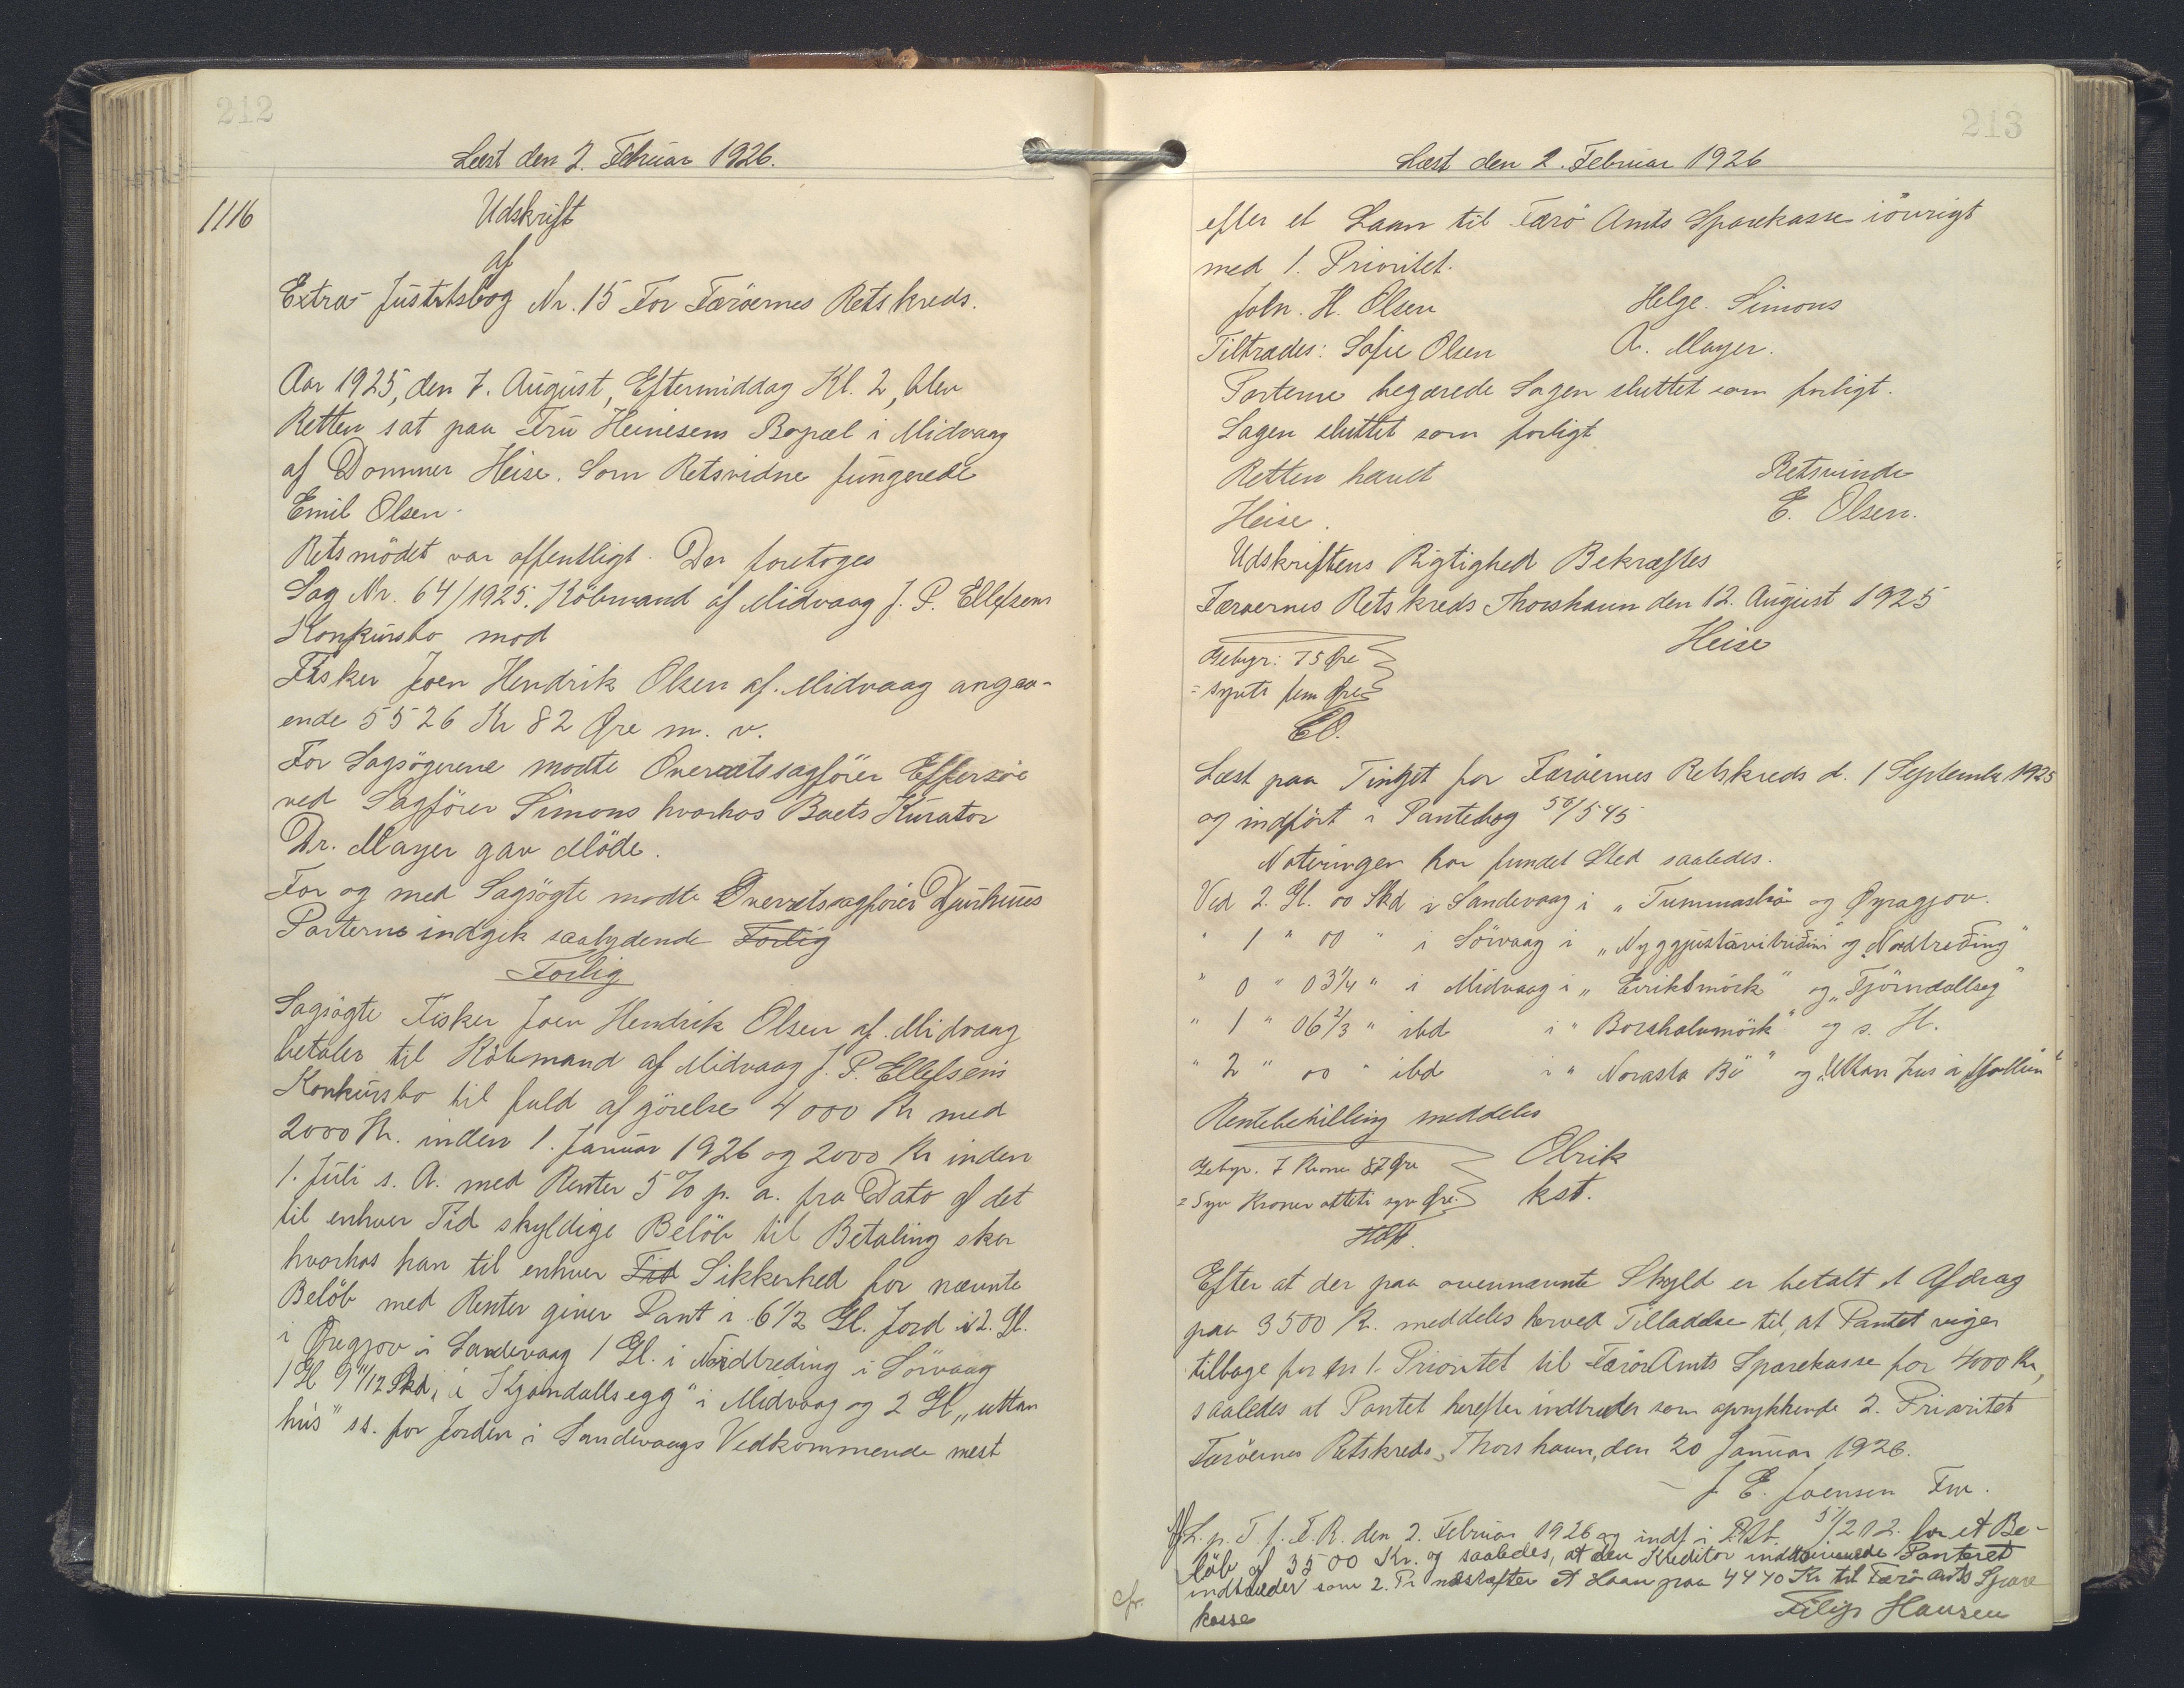 212
Læst den 2. Februar 1926.
1116
Udskrift
af
Extra-Justitsbog Nr. 15 For Færöernes Retskreds.
Aar 1925, den 7. August, Eftermiddag Kl. 2, blev
Retten sat paa Fru Heinesens Bopæl i Midvaag
af Dommer Heise. Som Retsvidne fungerede
Emil Olsen.
Retsmödet var offentligt. Der foretoges
Sag Nr. 64/1925. Köbmand af Midvaag J. P. Ellefsens
Konkursbo mod
Fisker Joen Hendrik Olsen af Midvaag angaa-
ende 5526 Kr 82 Øre m. v.
For Sagsögerene modte Overretssagförer Effersöe
ved Sagförer Simons hvorhos Boets Kurator
Dr. Mayer gav Möde.
For og med Sagsögte modte Overretssagförer Djurhuus
Parterne indgik saalydende Forlig
Forlig
Sagsögte Fisker Joen Hendrik Olsen af Midvaag
betaler til Köbmand af Midvaag J. P. Ellefsens
Konkursbo til fuld afgörelse 4000 Kr med
2000 Kr. inden 1. Januar 1926 og 2000 Kr inden
1. Juli s. A. med Renter 5 % p. a. fra Dato af det
til enhver Tid skyldige Belöb til Betaling sker
hvorhos han til enhver Tid Sikkerhed for nævnte
Belöb med Renter giver Pant i 6 1/2 Gl. Jord i 2. Gl.
i Öregjov i Sandevaag 1 Gl. i Nordtreding i Sörvaag
1 Gl 9 11/12 Skd, i "Kjandallsegg" i Midvaag og 2 Gl "uttan
hús" ss. for Jorden i Sandevaags Vedkommende næst
213
Læst den 2. Februar 1926
efter et Laan til Færö Amts Sparekasse iövrigt
med 1. Prioritet.
John. H. Olsen Helge. Simons
Tiltrædes: Sofie Olsen A. Mayer.
Parterne begærede Sagen sluttet som forligt.
Sagen sluttet som forligt.
Retten hævet Retsvinde
Heise. E. Olsen.
Udskriftens Rigtighed Bekræftes
Færoernes Retskreds Thorshavn den 12. August 1925
Heise
Gebyr: 75 Øre
= syvti fem Øre
EO.
Læst paa Tinget for Færöernes Retskreds d. 1 September 1925
og indfört i Pantebog 50/545
Noteringen har fundet Sted saaledes.
Ved 2. Gl. 00 Skd i Sandevaag i "Tummasbö og Øyragjov.
" 1 " 00 " i Sörvaag i "Nyggjustaviktriðini" og "Nordtreðing"
" 0 " 03 1/4 " i Midvaag i "Eiriksmörk" og "Tjörndallseg"
" 1 " 06 2/3 " ibd i "Borshalumörk" og s. H.
" 2 " 00 " ibd i " Norasta Bö " og "Uttan hus a Hjallum"
Rentebekilling meddeles
Gebyr. 7 Kroner 87 Øre Olrik
= Syv Kroner otteti syv Øre. kst.
Efter at der paa ovennævnte Skyld er betalt et Afdrag
paa 3500 Kr. meddeles herved Tilladelse til, at Pantet viger
tilbage for en 1. Prioritet til Færö Amts Sparekasse for 4000 Kr,
saaledes at Pantet herefter indtræder som oprykkende 2. Prioritet
Færöernes Retskreds, Thorshavn, den 20 Januar 1926.
J E. Joensen Fm.
Afl. L. p. T. f. F. R. den 2. Februar 1926 og indf i P. Pt. 51/212. for et Be-
löb af 3500 Kr. og saaledes, at den Kreditor indrömmede Panteret
indtræder som 2. Pr næstefter et Laan paa 4440 Kr til Færö Amts Spare
kasse Filip Hansen
cfr.